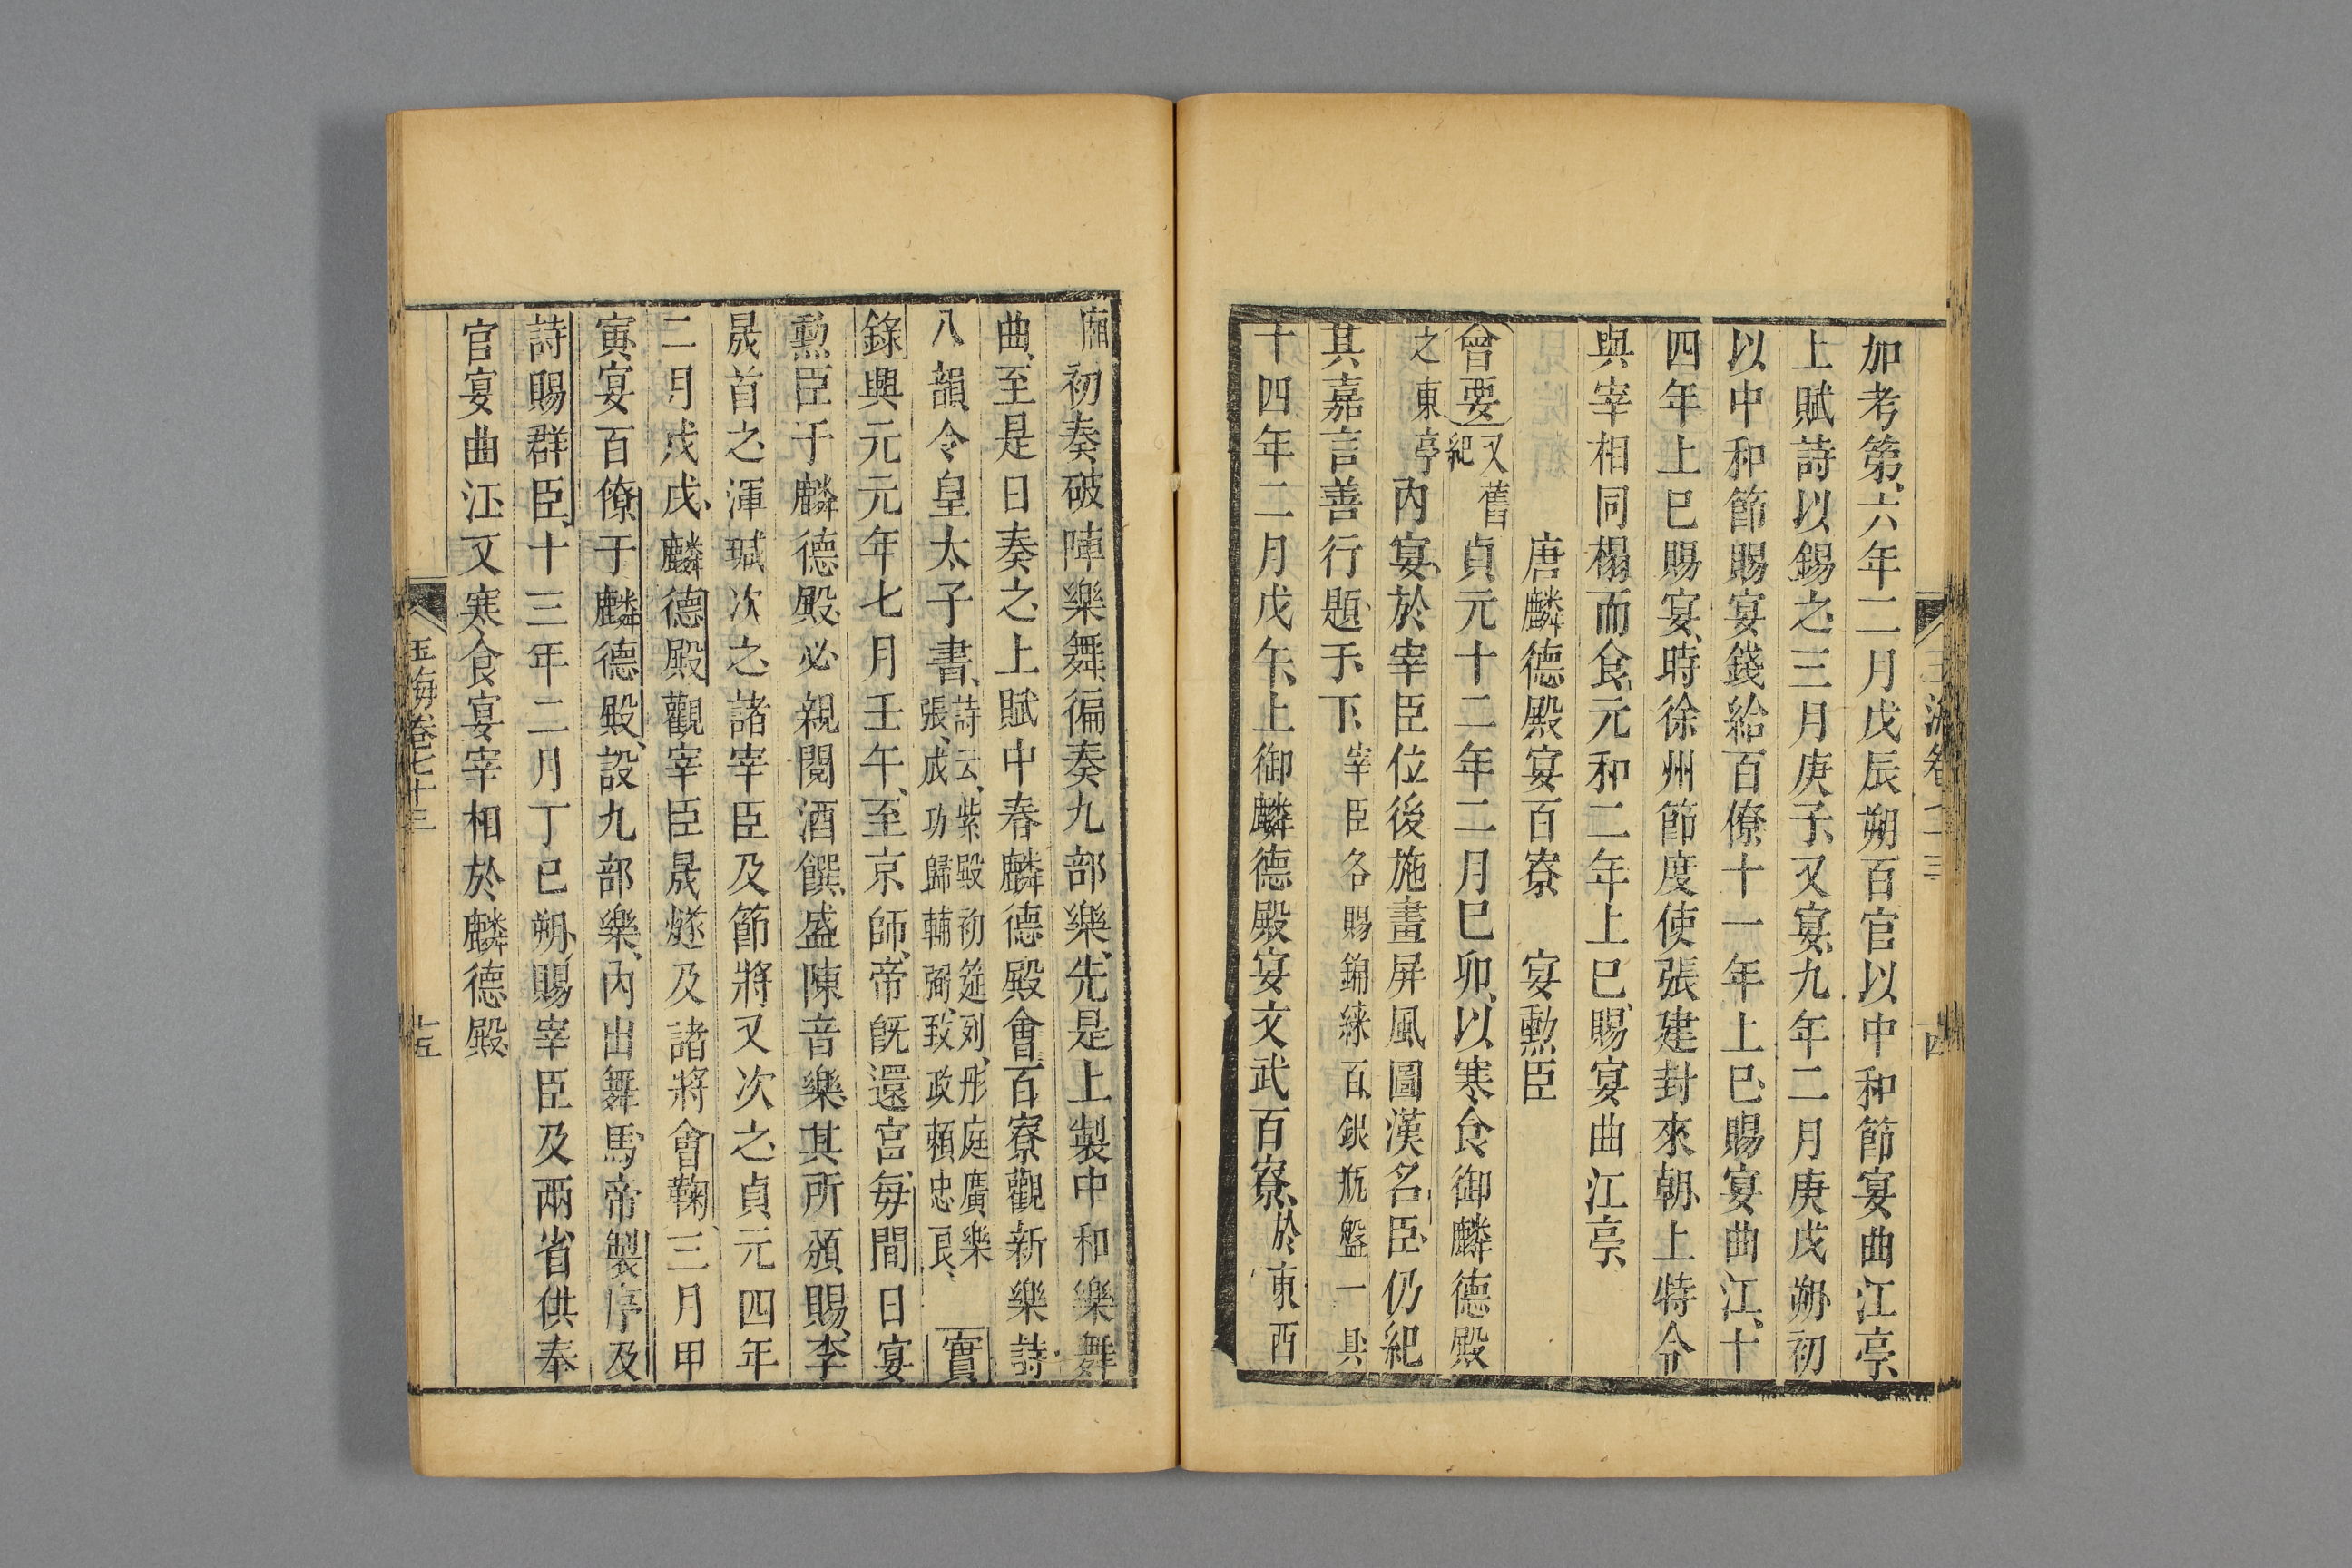 加考第六年二月戊辰朔百官以中和節宴曲江亭
上賦詩以錫之三月庚子又宴九年二月庚戌朔初
以中和節賜宴錢給百僚十一年上巳賜宴曲江十
四年上巳賜宴時徐州節度使張建封來朝上特令
與宰相同榻而食元和二年上巳賜宴曲江亭
唐麟德殿宴百寮 宴勲臣
會要又舊紀貞元十二年二月巳卯以寒食御麟德殿
之東亭內宴於宰臣位後施畫屏風圖漢名臣仍紀
其嘉言善行題于下宰臣各賜錦綵百銀瓶盤一具
十四年二月戊午上御麟德殿宴文武百寮於東西
廂初奏破陣樂舞徧奏九部樂先是上製中和樂舞
曲至是日奏之上賦中春麟德殿會百寮觀新樂詩
八韻令皇太子書詩云紫殿初筵列彤庭廣樂張成功歸輔弼致政賴忠良實
錄興元元年七月壬午至京師帝旣還宮每間日宴
勲臣于麟德殿必親閱酒饌盛陳音樂其所頒賜李
晟首之渾瑊次之諸宰臣及節將又次之貞元四年
二月戊戌麟德殿觀宰臣晟燧及諸將會鞠三月甲
寅宴百僚于麟德殿設九部樂內出舞馬帝製序及
詩賜群臣十三年二月丁巳朔賜宰臣及兩省供奉
官宴曲江又寒食宴宰相於麟德殿
玉海卷七十三
十五